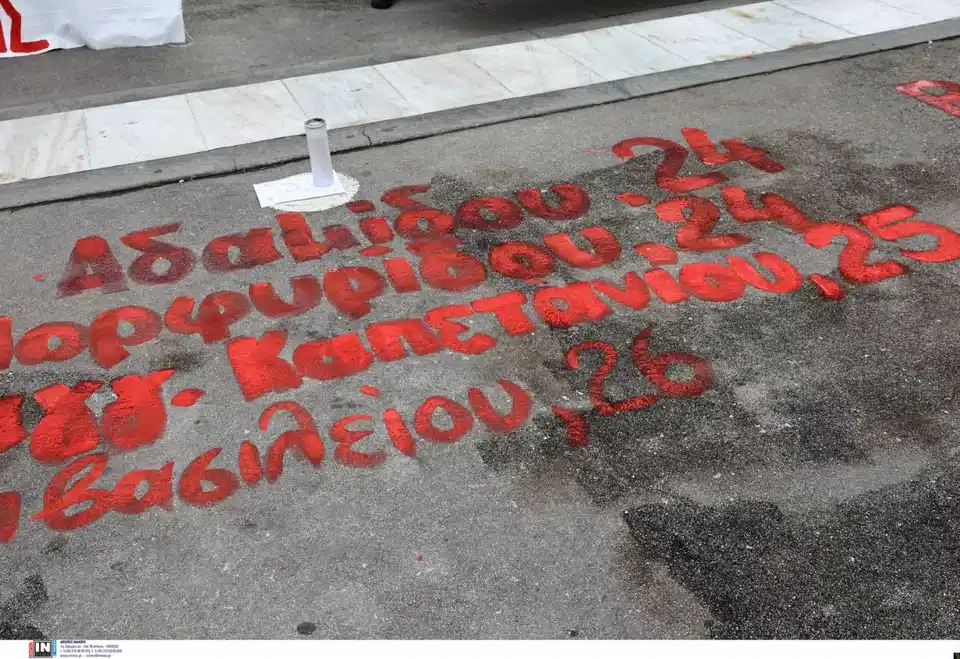 Αδαμίδου, 24
Πορφυρίδου, 24
Αγγ. Καπετανίου, 25
βασιλείου, 26
IN